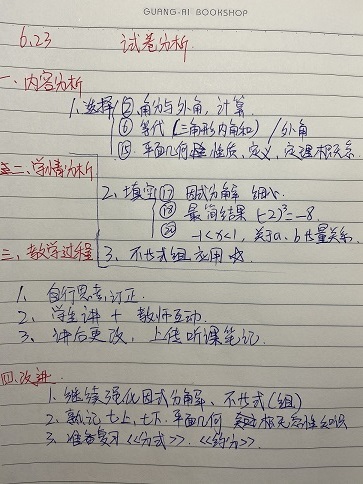 GUANG-RI BOOKSHOP
6.23 试卷分析.
一、内容分析
1、选择/⑤角分与外角,计算
⑥等代(三角形内角和)/外角
⑮平面几何 性质、定义、定理相关
二、学情分析
2、填空⑰ 因式分解 细心.
⑱ 最简结果 (-2)³=-8
-1<x<1,关于a、b 量关系.
三、教学过程
3、不等式组应用
1、自行思考,订正.
2、学生讲+教师互动.
3、讲后更改,上传听课笔记.
四、改进.
1、继续强化因式分解、不等式(组)
2、熟记七上,七下.平面几何
3、准备复习<<分式>>.